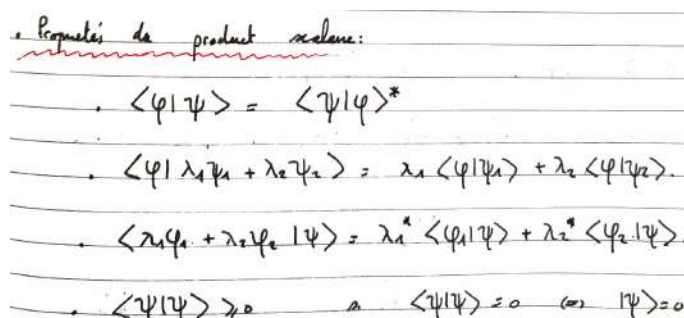 . Propriétés du product scalaire:
. <φ|ψ> = <ψ|φ>*
. <φ| λ₁ψ₁ + λ₂ψ₂> = λ₁ <φ|ψ₁> + λ₂ <φ|ψ₂>.
. <λ₁φ₁ + λ₂φ₂ |ψ> = λ₁* <φ₁|ψ> + λ₂* <φ₂|ψ>
. <ψ|ψ> ⩾ 0 <ψ|ψ> = 0 (=) |ψ> = 0